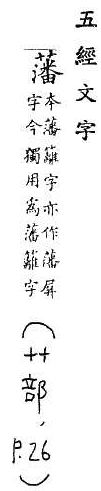 五經文字
藩
本藩籬字亦作藩屏
字今獨用為藩籬字
(艹部,
P.26)